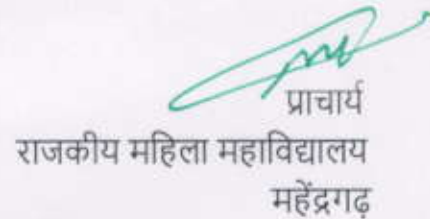 प्राचार्य
राजकीय महिला महाविद्यालय
महेंद्रगढ़